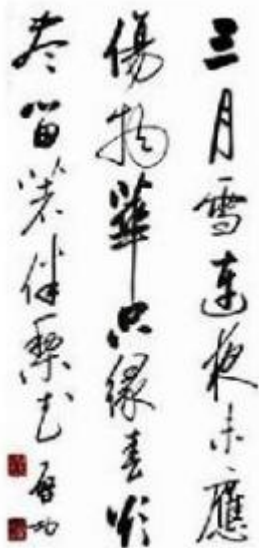 三月雪連夜未應
傷物華只緣春欲
尽留著伴梨花 啓功